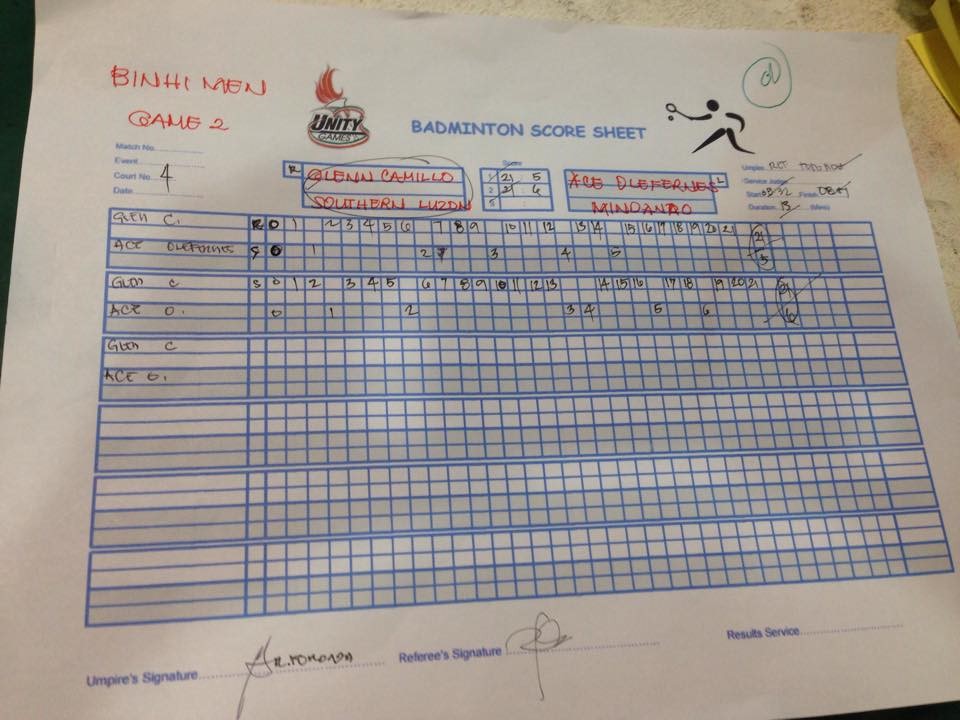 BINHI MEN
GAME 2
UNITY
GAMES
BADMINTON SCORE SHEET
Match No.
Event
Court No. 4
Date
R GLENN CAMILLO
SOUTHERN LUZON
Score
1 21 : 5
2 21 : 6
3 :
ACE DLEFERNES L
MINDANAO
Umpire
Service Judge
Start 08:32 Finish
Duration 13 (Mins)
GLEN C. R 0 1 2 3 4 5 6 7 8 9 10 11 12 13 14 15 16 17 18 19 20 21 21
ACE DLEFERNES S 0 1 2 3 4 5 5
GLEN C S 0 1 2 3 4 5 6 7 8 9 10 11 12 13 14 15 16 17 18 19 20 21 21
ACE D. 0 1 2 3 4 5 6 6
GLEN C
ACE D.
Umpire's Signature
Referee's Signature
Results Service